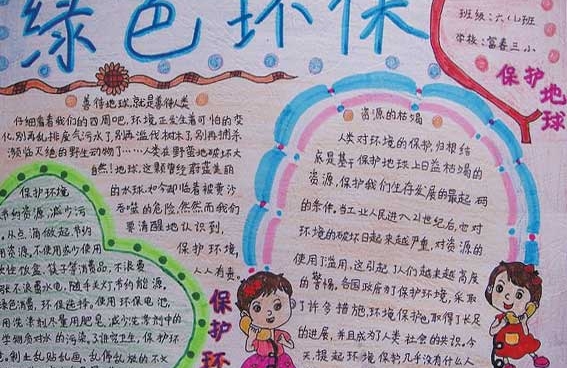 绿色环保
班级:六(4)班
学校:富春三小
保护地球
善待地球,就是善待人类
仔细看看我们的四周吧,环境正发生着可怕的变
化,别再乱排废气污水了,别再滥伐树木了,别再捕杀
濒临灭绝的野生动物了……人类在野蛮地破坏大
自然!地球,这颗曾经蔚蓝美丽
的水球,如今却临着被黄沙
吞噬的危险,然而我们
要清醒地认识到,
保护环境,
人人有责。
保护环境
节约资源,减少污
从点滴做起,节约
用资源,不使用或少使用
次性饭盒、筷子等消费品,不浪费
张不浪费水电,随手关灯,节约能源,
绿色消费,环保选择。使用环保电池,
用洗涤剂尽量用肥皂,减少洗涤剂中的
学物质对水的污染。了讲究卫生,保护环
意。制止乱贴乱画、乱停乱放的不文
保护环
资源的枯竭
人类对环境的保护,归根结
底是基于保护地球上日益枯竭的
资源,保护我们生存发展的最起码
的条件。当工业人民进入21世纪后,也对
环境的破坏日起来越严重,对资源的
使用了滥用,这引起了人们越来越高度
的警惕。各国政府为了保护环境,采取
了许多措施,环境保护也取得了长足
的进展,并且成为了人类社会的共识。今
天,提起环境保护,几乎没有什么人